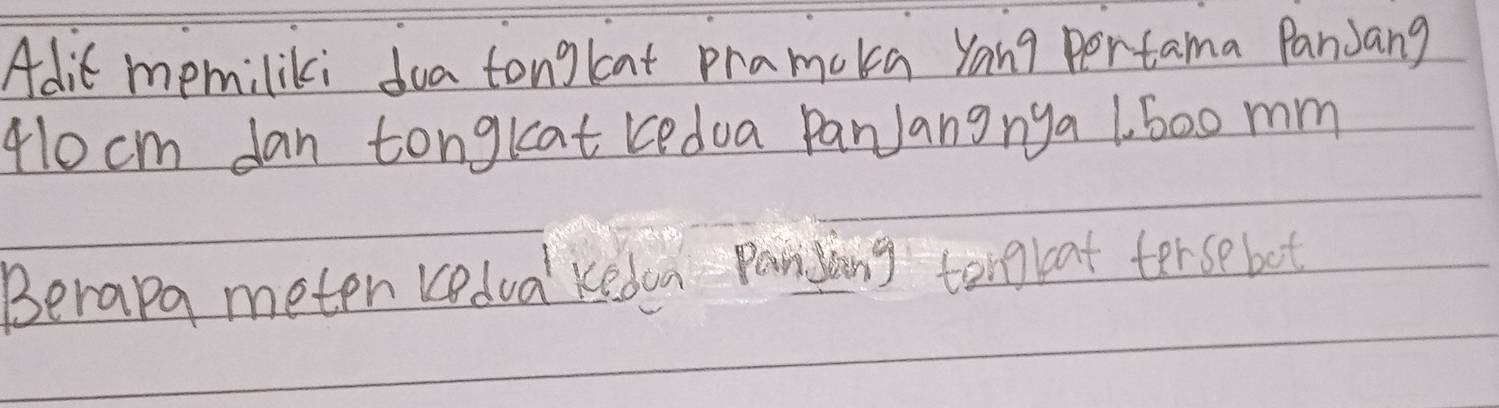 Adit memiliki dua tongkat pramuka yang pertama Panjang
410 cm dan tongkat kedua panjangnya 1.500 mm
Berapa meter kedua kedua panjang tongkat tersebut